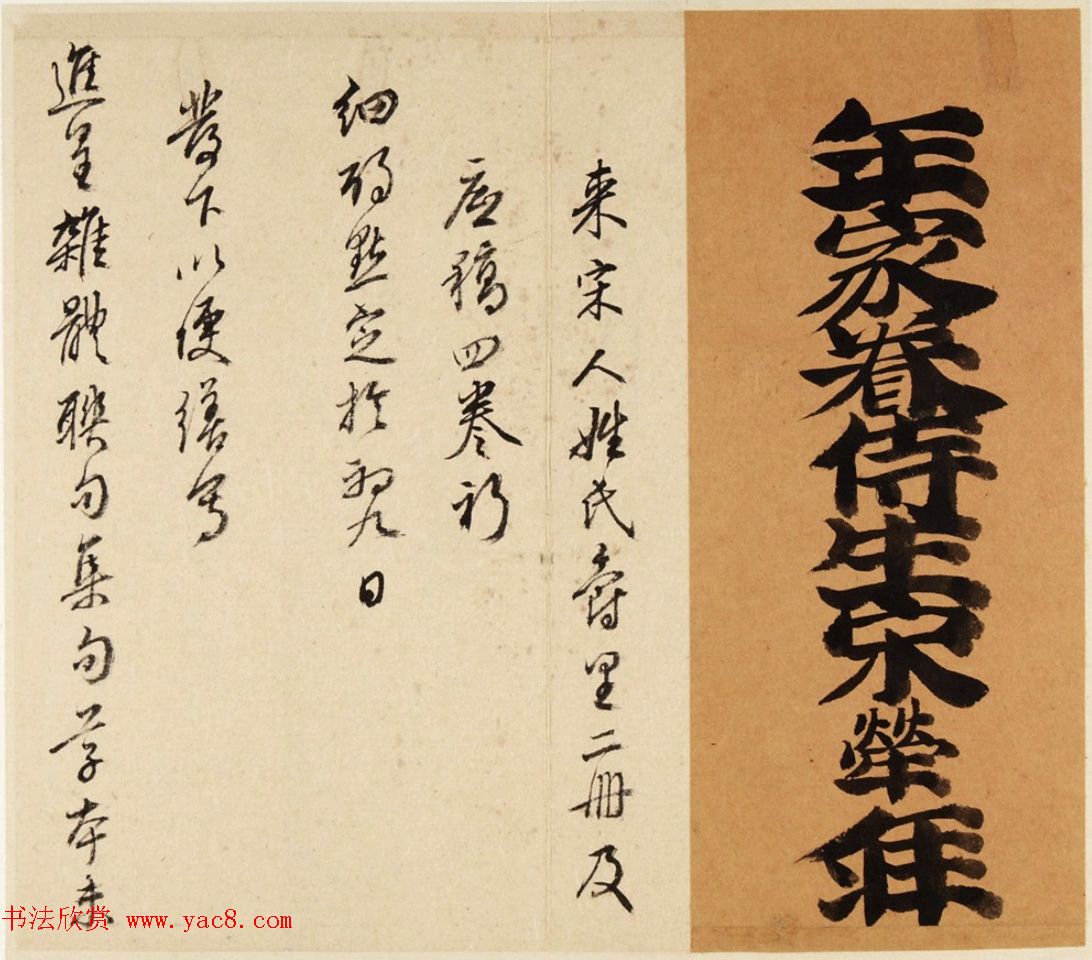 年家眷侍生宋犖拜
来宋人姓氏爵里二冊及
底稿四卷祈
細酌點定於初九日
發下以便繕寫
進呈雜體聯句集句草本未
书法欣赏 www.yac8.com